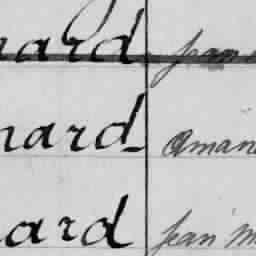 nard Jean
nard Aman
nard Jean M